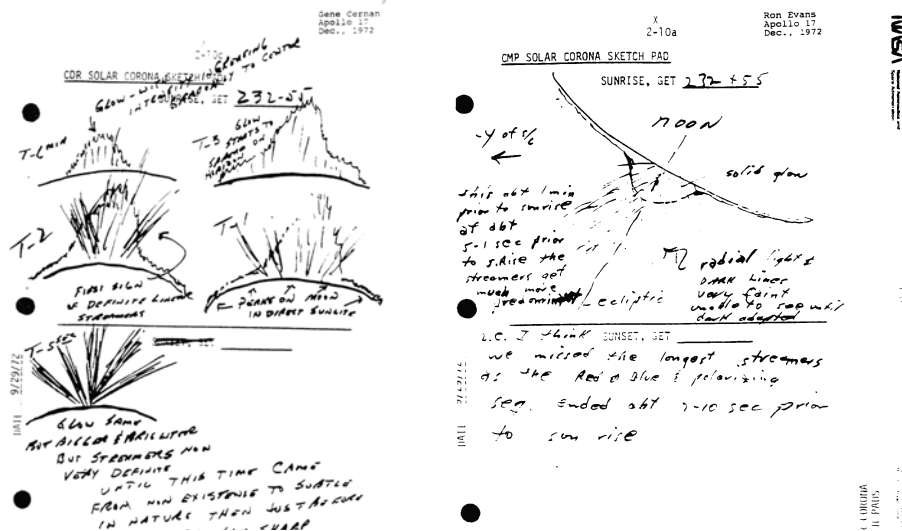 Gene Cernan
Apollo 17
Dec., 1972
CDR SOLAR CORONA SKETCH
GLOW - WITH INCREASING
INTENSITY TO CENTER
SUNRISE, GET 232-55
T-6 MIN
T-3
GLOW
STARTS TO
SPREAD ON
HORIZON
T-2
FIRST SIGN
OF DEFINITE LINEAR
STREAMERS
T-1
PEAKS ON MOON
IN DIRECT SUNLITE
SUNSET, GET
T-5 SEC
DATE 9/29/72
GLOW SAME
BUT BIGGER & BRIGHTER
BUT STREAMERS NOW
VERY DEFINITE
UNTIL THIS TIME CAME
FROM NON EXISTENSE TO SUBTLE
IN NATURE THEN JUST BEFORE
SHARP
X
2-10a
Ron Evans
Apollo 17
Dec., 1972
NASA
National Aeronautics and
Space Administration
CMP SOLAR CORONA SKETCH PAD
SUNRISE, GET 232+55
MOON
-Y of S/C
solid glow
this abt 1 min
prior to sunrise
at abt
5-1 sec prior
to S.Rise the
streamers get
much more
predominant
ecliptic
radial light &
DARK Lines
very faint
unable to see until
dark adapted
I think SUNSET, GET
we missed the longest streamers
as the Red & Blue & polarizing
seq. Ended abt 7-10 sec prior
to sun rise
DATE
CORONA
PADS